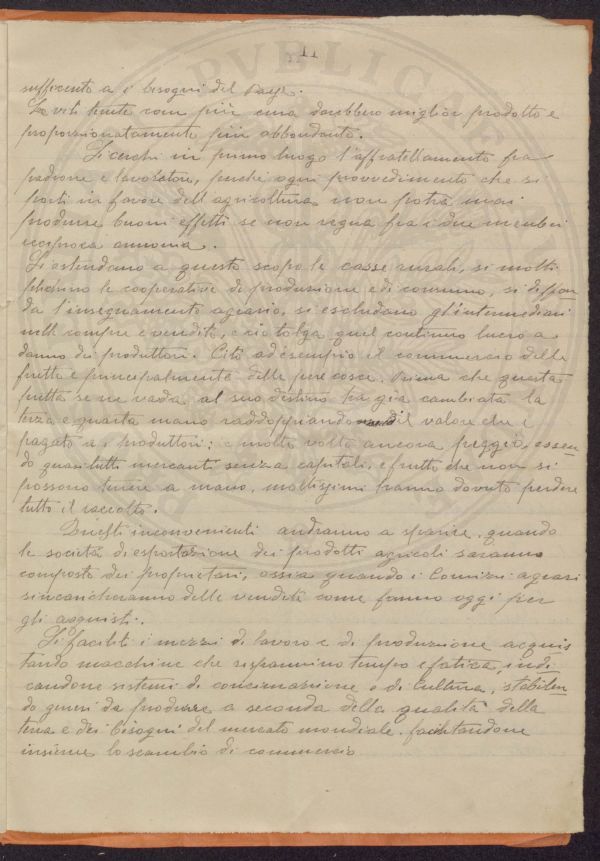 11
sufficente a i bisogni del Paese.
Le viti tenute com più cura darebbero miglior prodotto e
proporzionatamente più abbondante.
Si cerchi in primo luogo l'affratellamento fra
padrone e lavoratori, perchè ogni provvedimento che si
porti in favore dell'agricoltura non potrà mai
produrre buoni effetti se non regna fra i due membri
reciproca armonia.
Si estendano a questo scopo le casse rurali, si molti
plichino le cooperative di produzione e di consumo, si diffon
da l'insegnamento agrario, si escludano gl'intermediari
nelle compre e vendite, e ciò tolga quel continuo lucro a
danno dei produttori. Cito ad esempio il commercio delle
frutte e principalmente delle pere cosce. Prima che questa
frutta se ne vada al suo destino ha già cambiata la
terza e quarta mano raddoppiando il valore che è
pagato a i produttori; e molte volte ancora peggio, essen
do quasi tutti mercanti senza capitali, e frutto che non si
possono tenere a mano, moltissimi hanno dovuto perdere
tutto il raccolto.
Questi inconvenienti andranno a sparire, quando
le società di esportazione dei prodotti agricoli saranno
composte dei proprietari, ossia quando i Comizi agrari
s'incaricheranno delle vendite come fanno oggi per
gli acquisti.
Si faciliti i mezzi di lavoro e di produzione acquis
tando macchine che risparmino tempo e fatica, indi
candone sistemi di concimazione e di Cultura, stabilen
do generi da produrre a seconda della qualità della
terra e dei bisogni del mercato mondiale, facilitandone
insieme lo scambio di commercio
PVBLICAE